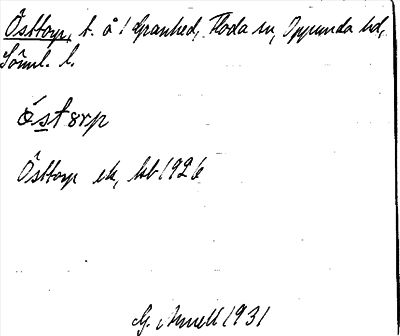 Östtorp, t. å 1 Granhed, Floda sn, Oppunda hd,
Söml. l.
östɷrp
Östtorp ek, hsb 1926
G. Arnell 1931